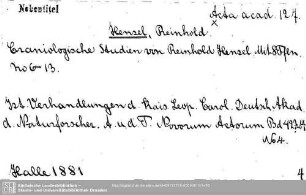 Nebentitel
Acta acad. 127.
x
Hensel, Reinhold.
Craniologische Studien von Reinhold Hensel. Mit 8 Tfen.
No 6-13.
Ist Verhandlungen d. Kais. Leop. Carol. Deutsch. Akad
d. Naturforscher. A. u. d. T. Novorum Actorum Bd 42,
No 4.
Halle 1881
4